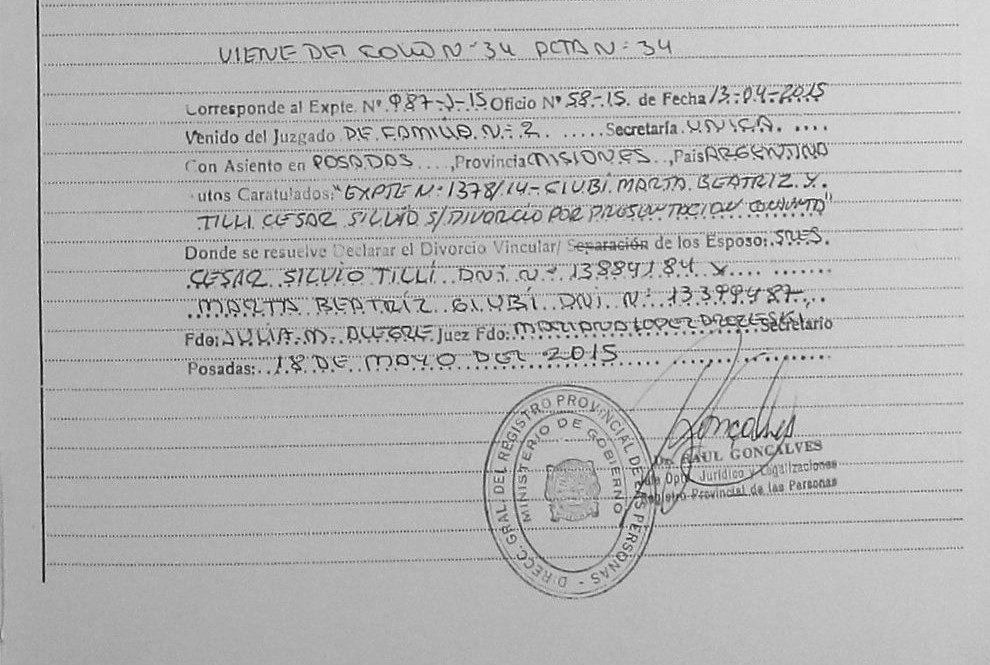 VIENE DEL FOLIO N:34 ACTA N:34
Corresponde al Expte. Nº 987-J-15 Oficio Nº 58-15. de Fecha 13-04-2015
Venido del Juzgado DE FAMILIA N:2 ..... Secretaría UNICA ....
Con Asiento en POSADAS ...., Provincia MISIONES .., País ARGENTINA
utos Caratulados: "EXPTE N:1378/14- GIUBI MARTA BEATRIZ Y.
TILLI CESAR SILVIO S/DIVORCIO POR PRESENTACION CONJUNTA"
Donde se resuelve Declarar el Divorcio Vincular/ Separación de los Esposo: SRES.
CESAR SILVIO TILLI DNI N: 13884184 Y
MARTA BEATRIZ GIUBI DNI N: 13399487-
Fdo: JULIA M. ALEGRE Juez Fdo: MARIANA LOPEZ Secretario
Posadas: 18 DE MAYO DEL 2015
DIRECC. GRAL. DEL REGISTRO PROVINCIAL DE LAS PERSONAS
MINISTERIO DE GOBIERNO
Gonçalves
Dr. RAUL GONCALVES
Jefe Dpto. Jurídico y Legalizaciones
Registro Provincial de las Personas